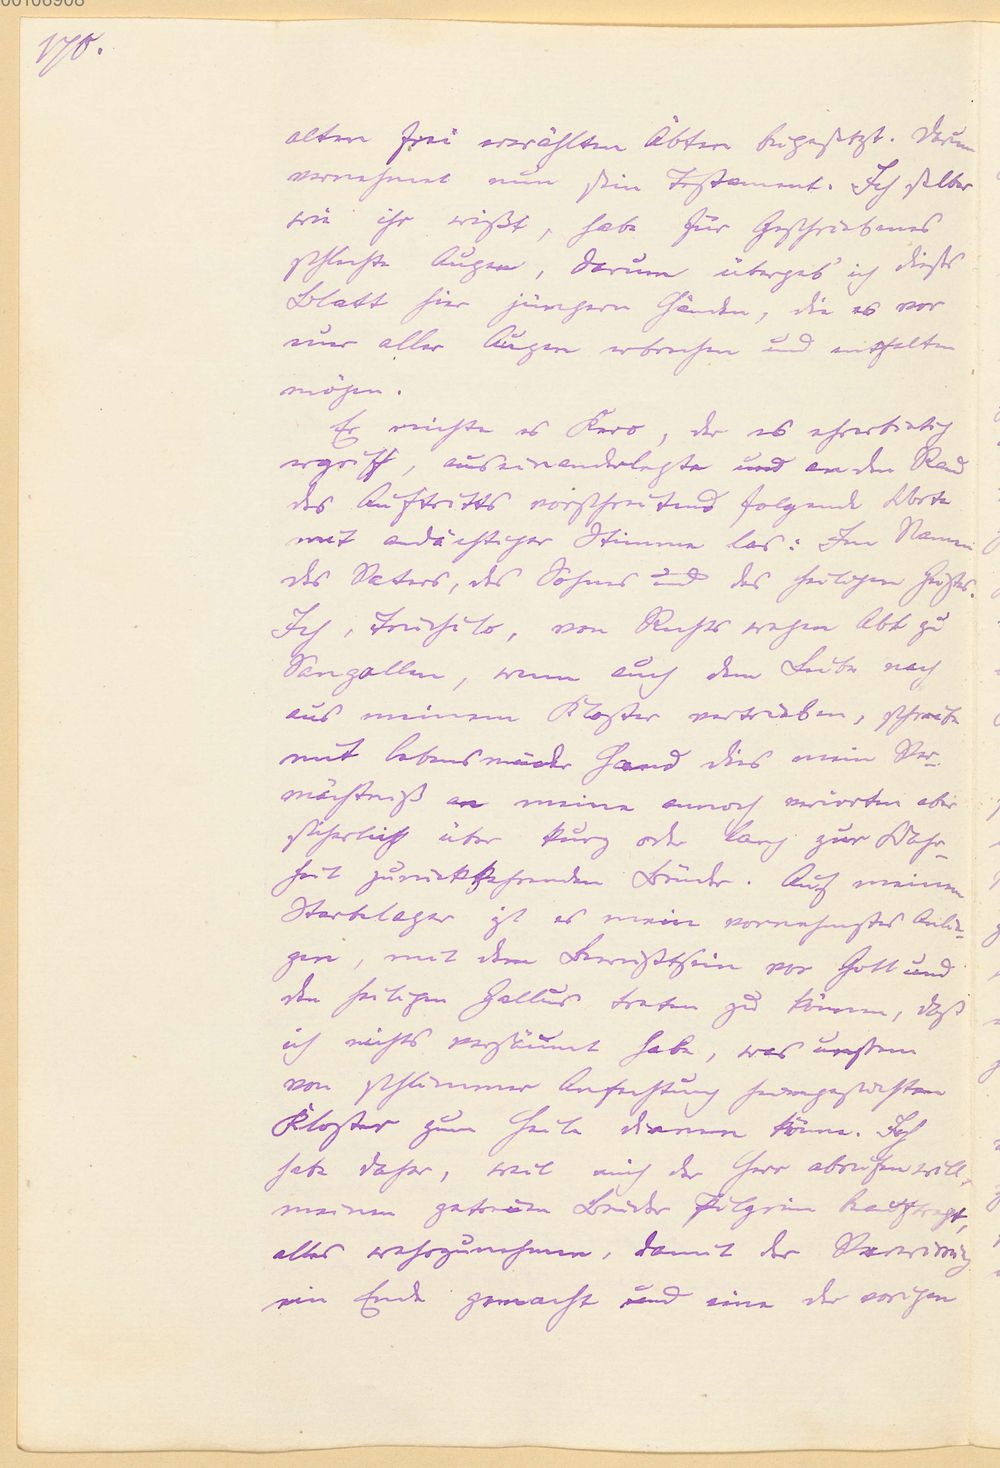 00106908
170.
alten frei erwählten Äbten beigesetzt. Darum
vernehmet nun sein Testament. Ich selber
wie ihr wißt, habe für Geschriebenes
schlechte Augen, darum übergeb' ich dieses
Blatt hier jüngern Händen, die es vor
euer aller Augen erbrechen und entfalten
mögen.
Er reichte es Kero, der es ehrerbietig
ergriff, auseinanderlegte und an den Rand
des Auftritts vorschreitend folgende Worte
mit andächtiger Stimme las: Im Namen
des Vaters, des Sohnes und des heiligen Geistes.
Ich, Fruchilo, von Rechts wegen Abt zu
Sangallen, wenn auch dem Leibe nach
aus meinem Kloster vertrieben, schreibe
mit lebensmüder Hand dies mein Ver-
mächtniß an meine annoch verirrten aber
sicherlich über kurz oder lang zur Wahr-
heit zurückkehrenden Brüder. Auf meinem
Sterbelager ist es mein vornehmstes Anlie-
gen, mit dem Bewußtsein vor Gott und
den heiligen Gallus treten zu können, daß
ich nichts versäumt habe, was unserm
von schlimmer Anfechtung heimgesuchten
Kloster zum Heile dienen könne. Ich
habe daher, weil mich der Herr abrufen will,
meinen getreuen Bruder Pilgrim beauftragt,
alles wahrzunehmen, damit der Verwirrung
ein Ende gemacht und eine der vorigen